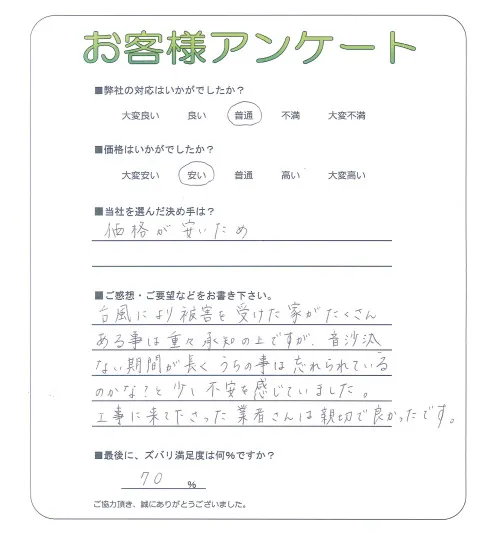 お客様アンケート
■弊社の対応はいかがでしたか?
大変良い 良い 普通 不満 大変不満
■価格はいかがでしたか?
大変安い 安い 普通 高い 大変高い
■当社を選んだ決め手は?
価格が安いため
■ご感想・ご要望などをお書き下さい。
台風により被害を受けた家がたくさん
ある事は重々承知の上ですが、音沙汰
ない期間が長くうちの事は忘れられている
のかな?と少し不安を感じていました。
工事に来て下さった業者さんは親切で良かったです。
■最後に、ズバリ満足度は何%ですか?
70 %
ご協力頂き、誠にありがとうございました。